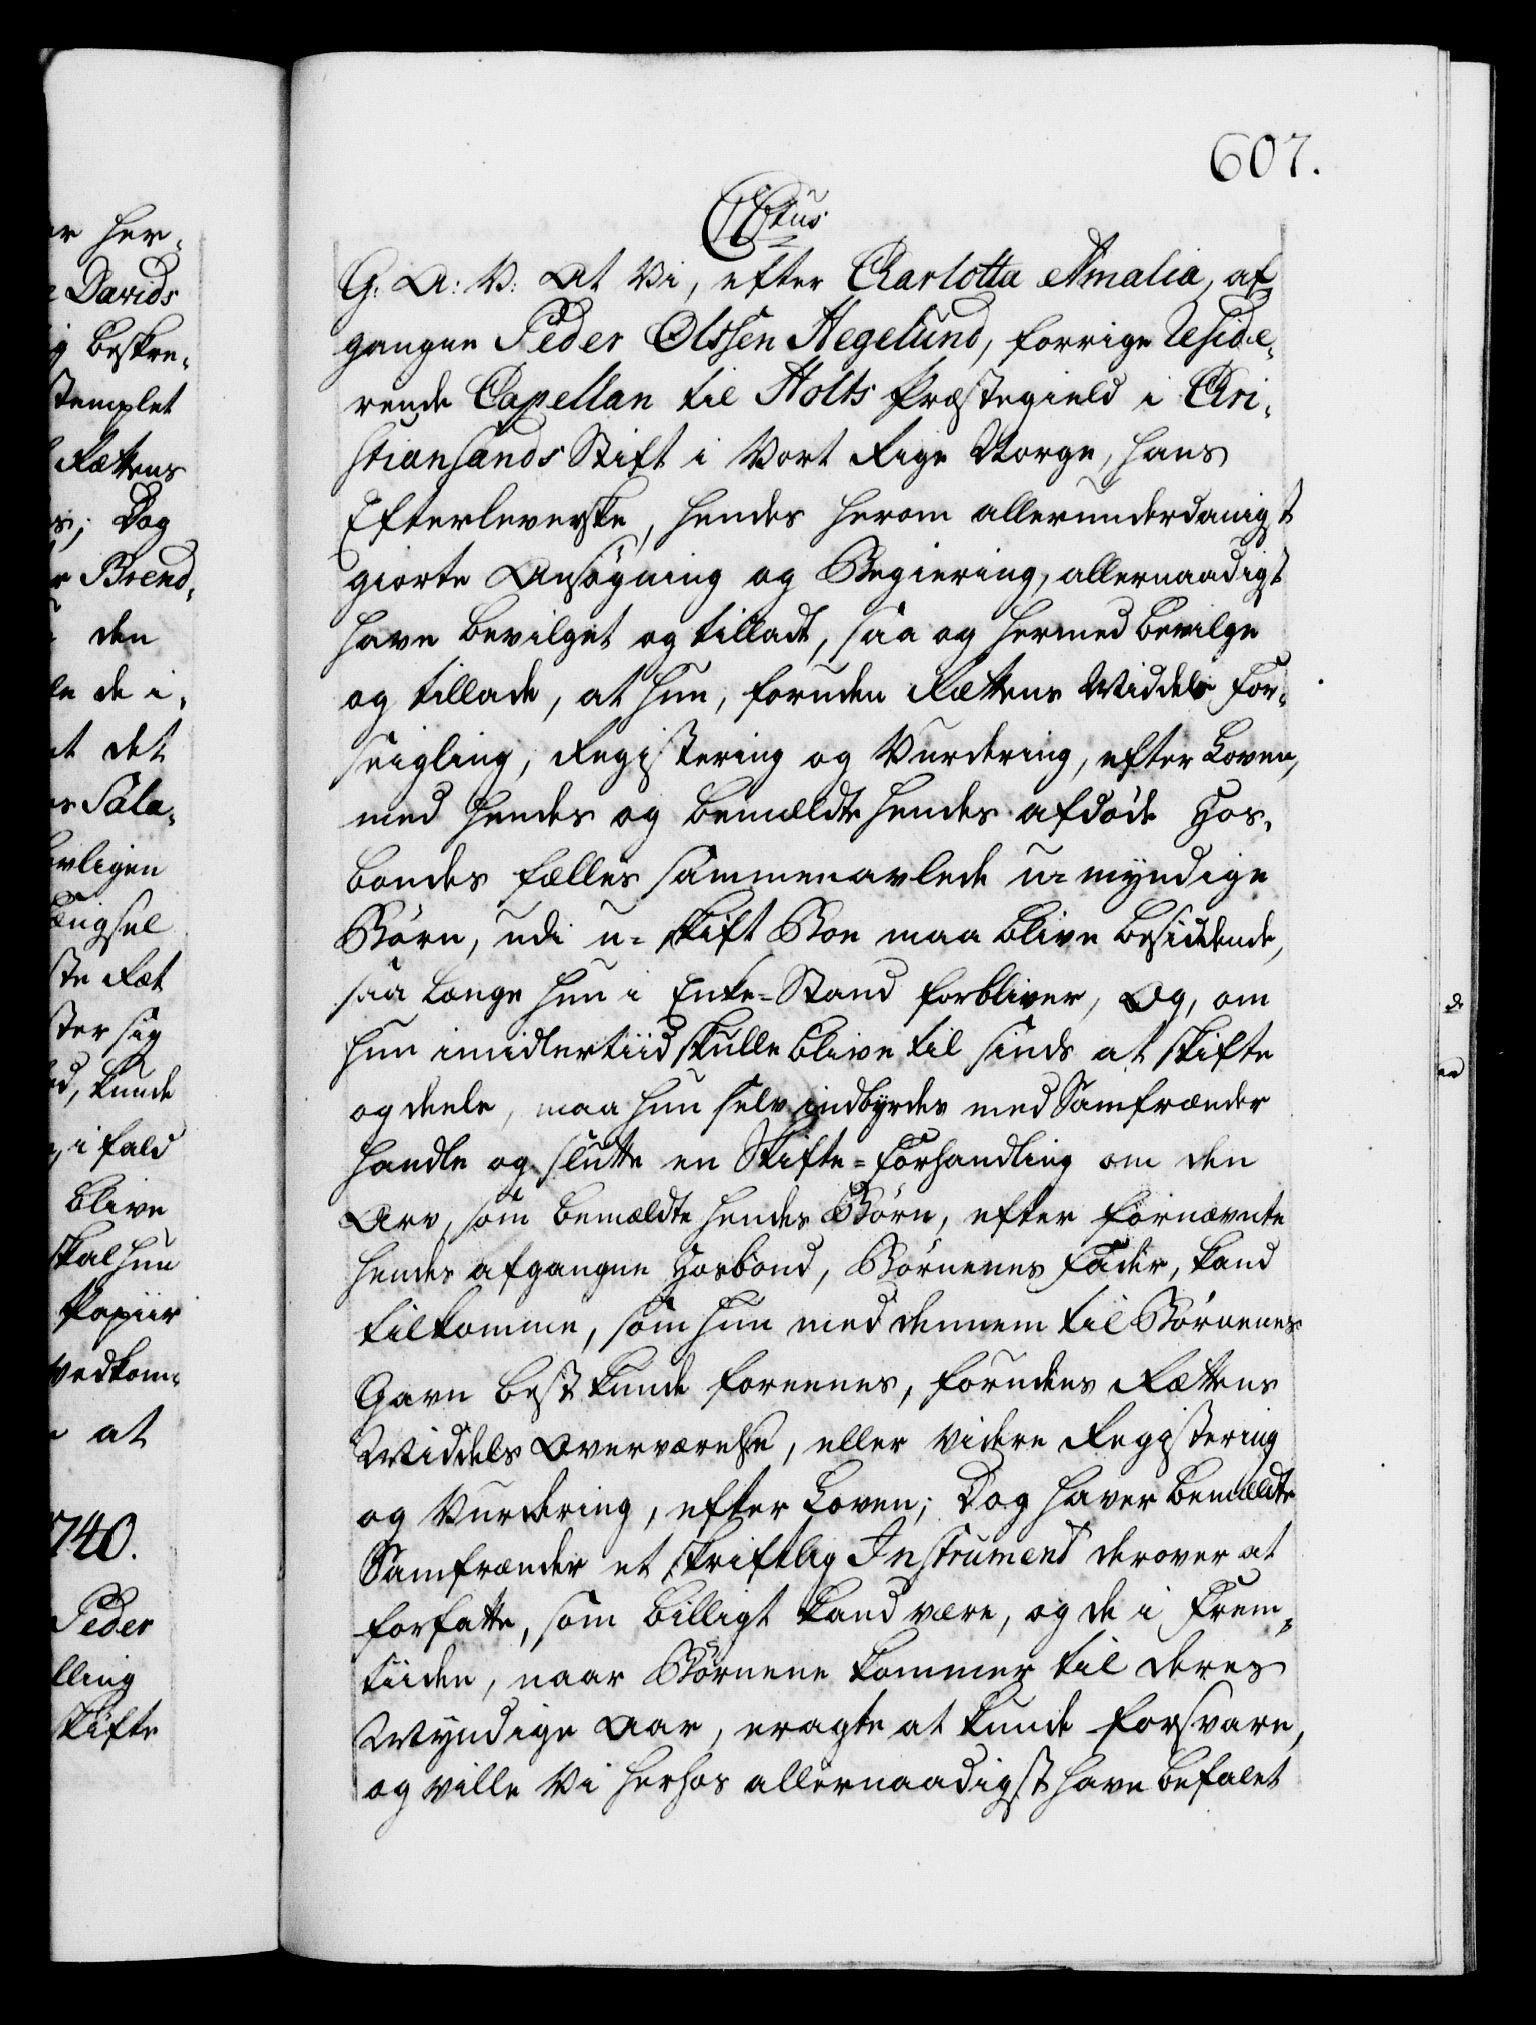 er her-
Davids
g beskre-
stemplet
Rættens
s; Dog
r Brend-
den
le de i-
at det
er Sala-
ovligen
ængsel
ste Ræt
ster sig
ed, kunde
i fald
blive
skal hun
Papiir
vedkom-
at
1740.
Peder
lling
skifte
607.
CR6tus
G: A: V: At Vi, efter Charlotta Amalia, af-
gangne Peder Olssen Hegelund, forrige Reside-
rende Capellan til Holts Præstegield i Chri-
stiansands Stift i Vort Rige Norge, hans
Efterleverske, hendes herom allerunderdanigst
giorte Ansøgning og Begiering, allernaadigst
have bevilget og tilladt, saa og hermed bevilge
og tillade, at hun, foruden Rættens Middels For-
seigling, Registering og Vurdering, efter Loven,
med hendes og bemældte hendes afdøde Hos-
bondes fælles sammenavlede u-myndige
Børn, udi u-skift Boe maa blive besiddende,
saa længe hun i Enke-Stand forbliver, Og, om
hun imidlertiid skulle blive til sinds at skifte
og deele, maa hun selv indbyrdes med Samfrænder
handle og slutte en Skifte-Forhandling om den
Arv, som bemældte hendes Børn, efter fornævnte
hendes afgangne Hosbond, Børnenes Fader, kand
tilkomme, som hun med dennem til Børnenes
Gavn best kunde foreenes, forudens Rættens
Middels Overværelse, eller videre Registering
og Vurdering, efter Loven; Dog haver bemældte
Samfrænder et skriftlig Instrument derover at
forfatte, som billigt kand være, og de i Frem-
tiiden, naar Børnene kommer til deres
Myndige Aar, eragte at kunde forsvare,
og ville Vi herhos allernaadigst have befalet